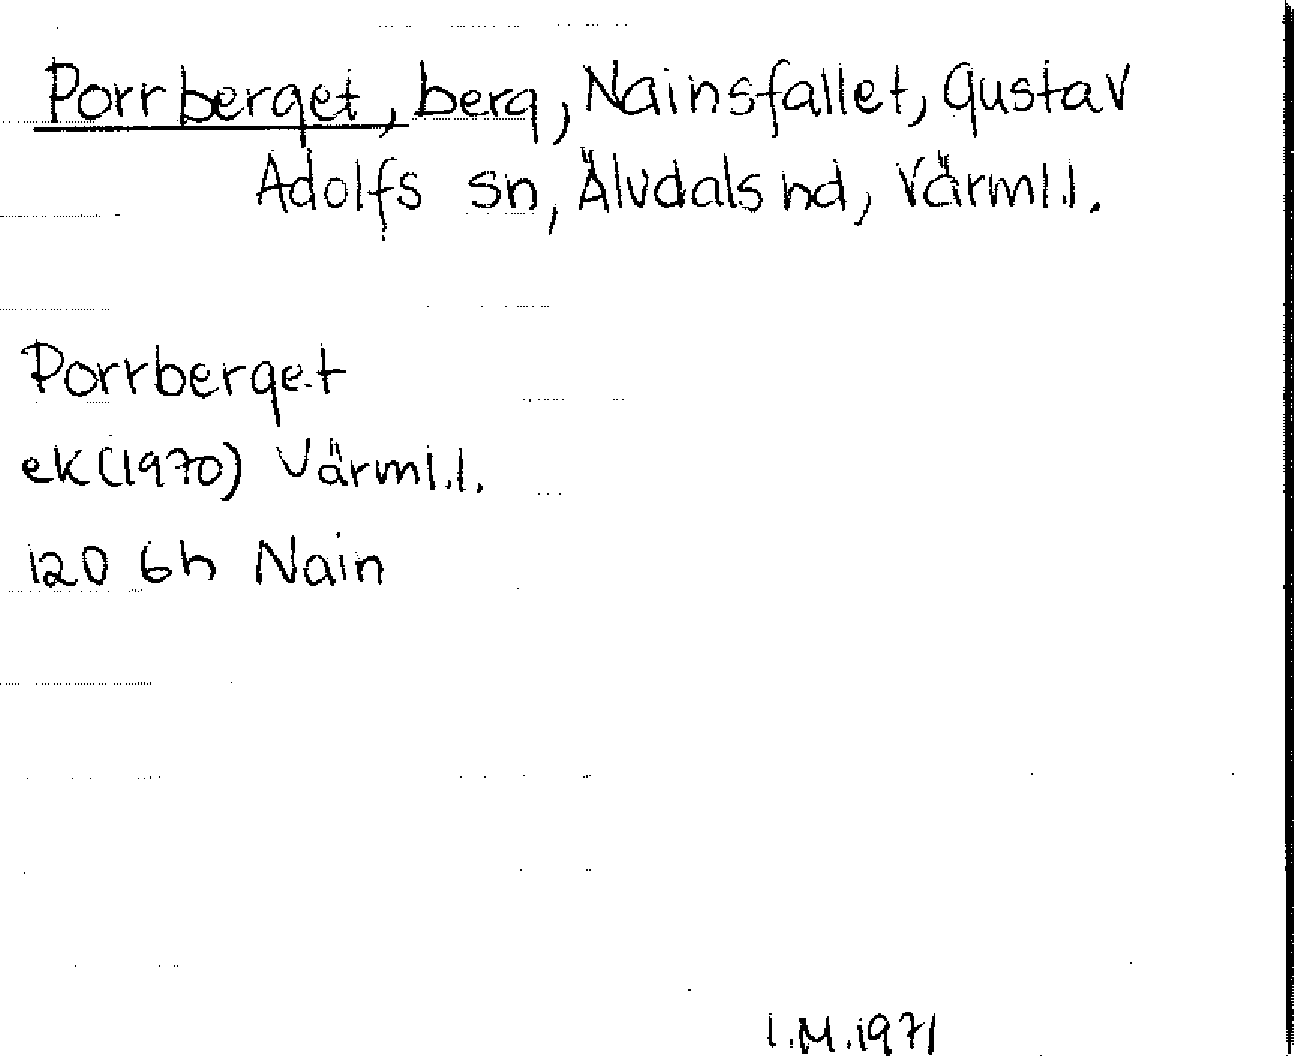 Porrberget, berg, Nainsfallet, Gustav
Adolfs sn, Älvdals hd, Värml.l.
Porrberget
ek (1970) Värml.l.
12D 6h Nain
I.M.1971